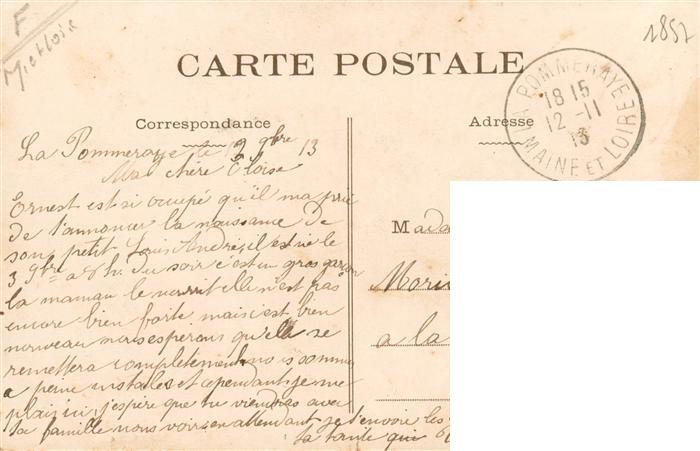 F
M et Loire
1857
CARTE POSTALE
Correspondance
Adresse
LA POMMERAYE
18 15
12 -11
13
MAINE ET LOIRE
La Pommeraye le 12 9bre 13
Ma chère Éloise
Ernest est si occupé qu'il ma prié
de t'annoncer la naissance de
son petit Louis André, il est né le
3 9bre a 8 h. du soir c'est un gros garçon
la maman le nourrit elle n'est pas
encore bien forte mais c'est bien
nouveau nous esperons qu'elle se
remettera complètement nous sommes
a peine instalés et cependant je me
plais ici, j'espère que tu viendras avec
ta famille nous voir en attendant je t'envoie les
ta tante qui
Mada
Moric
a la